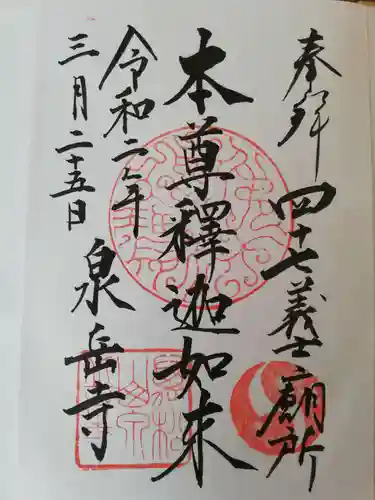 奉拝 四十七義士廟所
本尊釋迦如来
令和二年
三月二十五日
泉岳寺